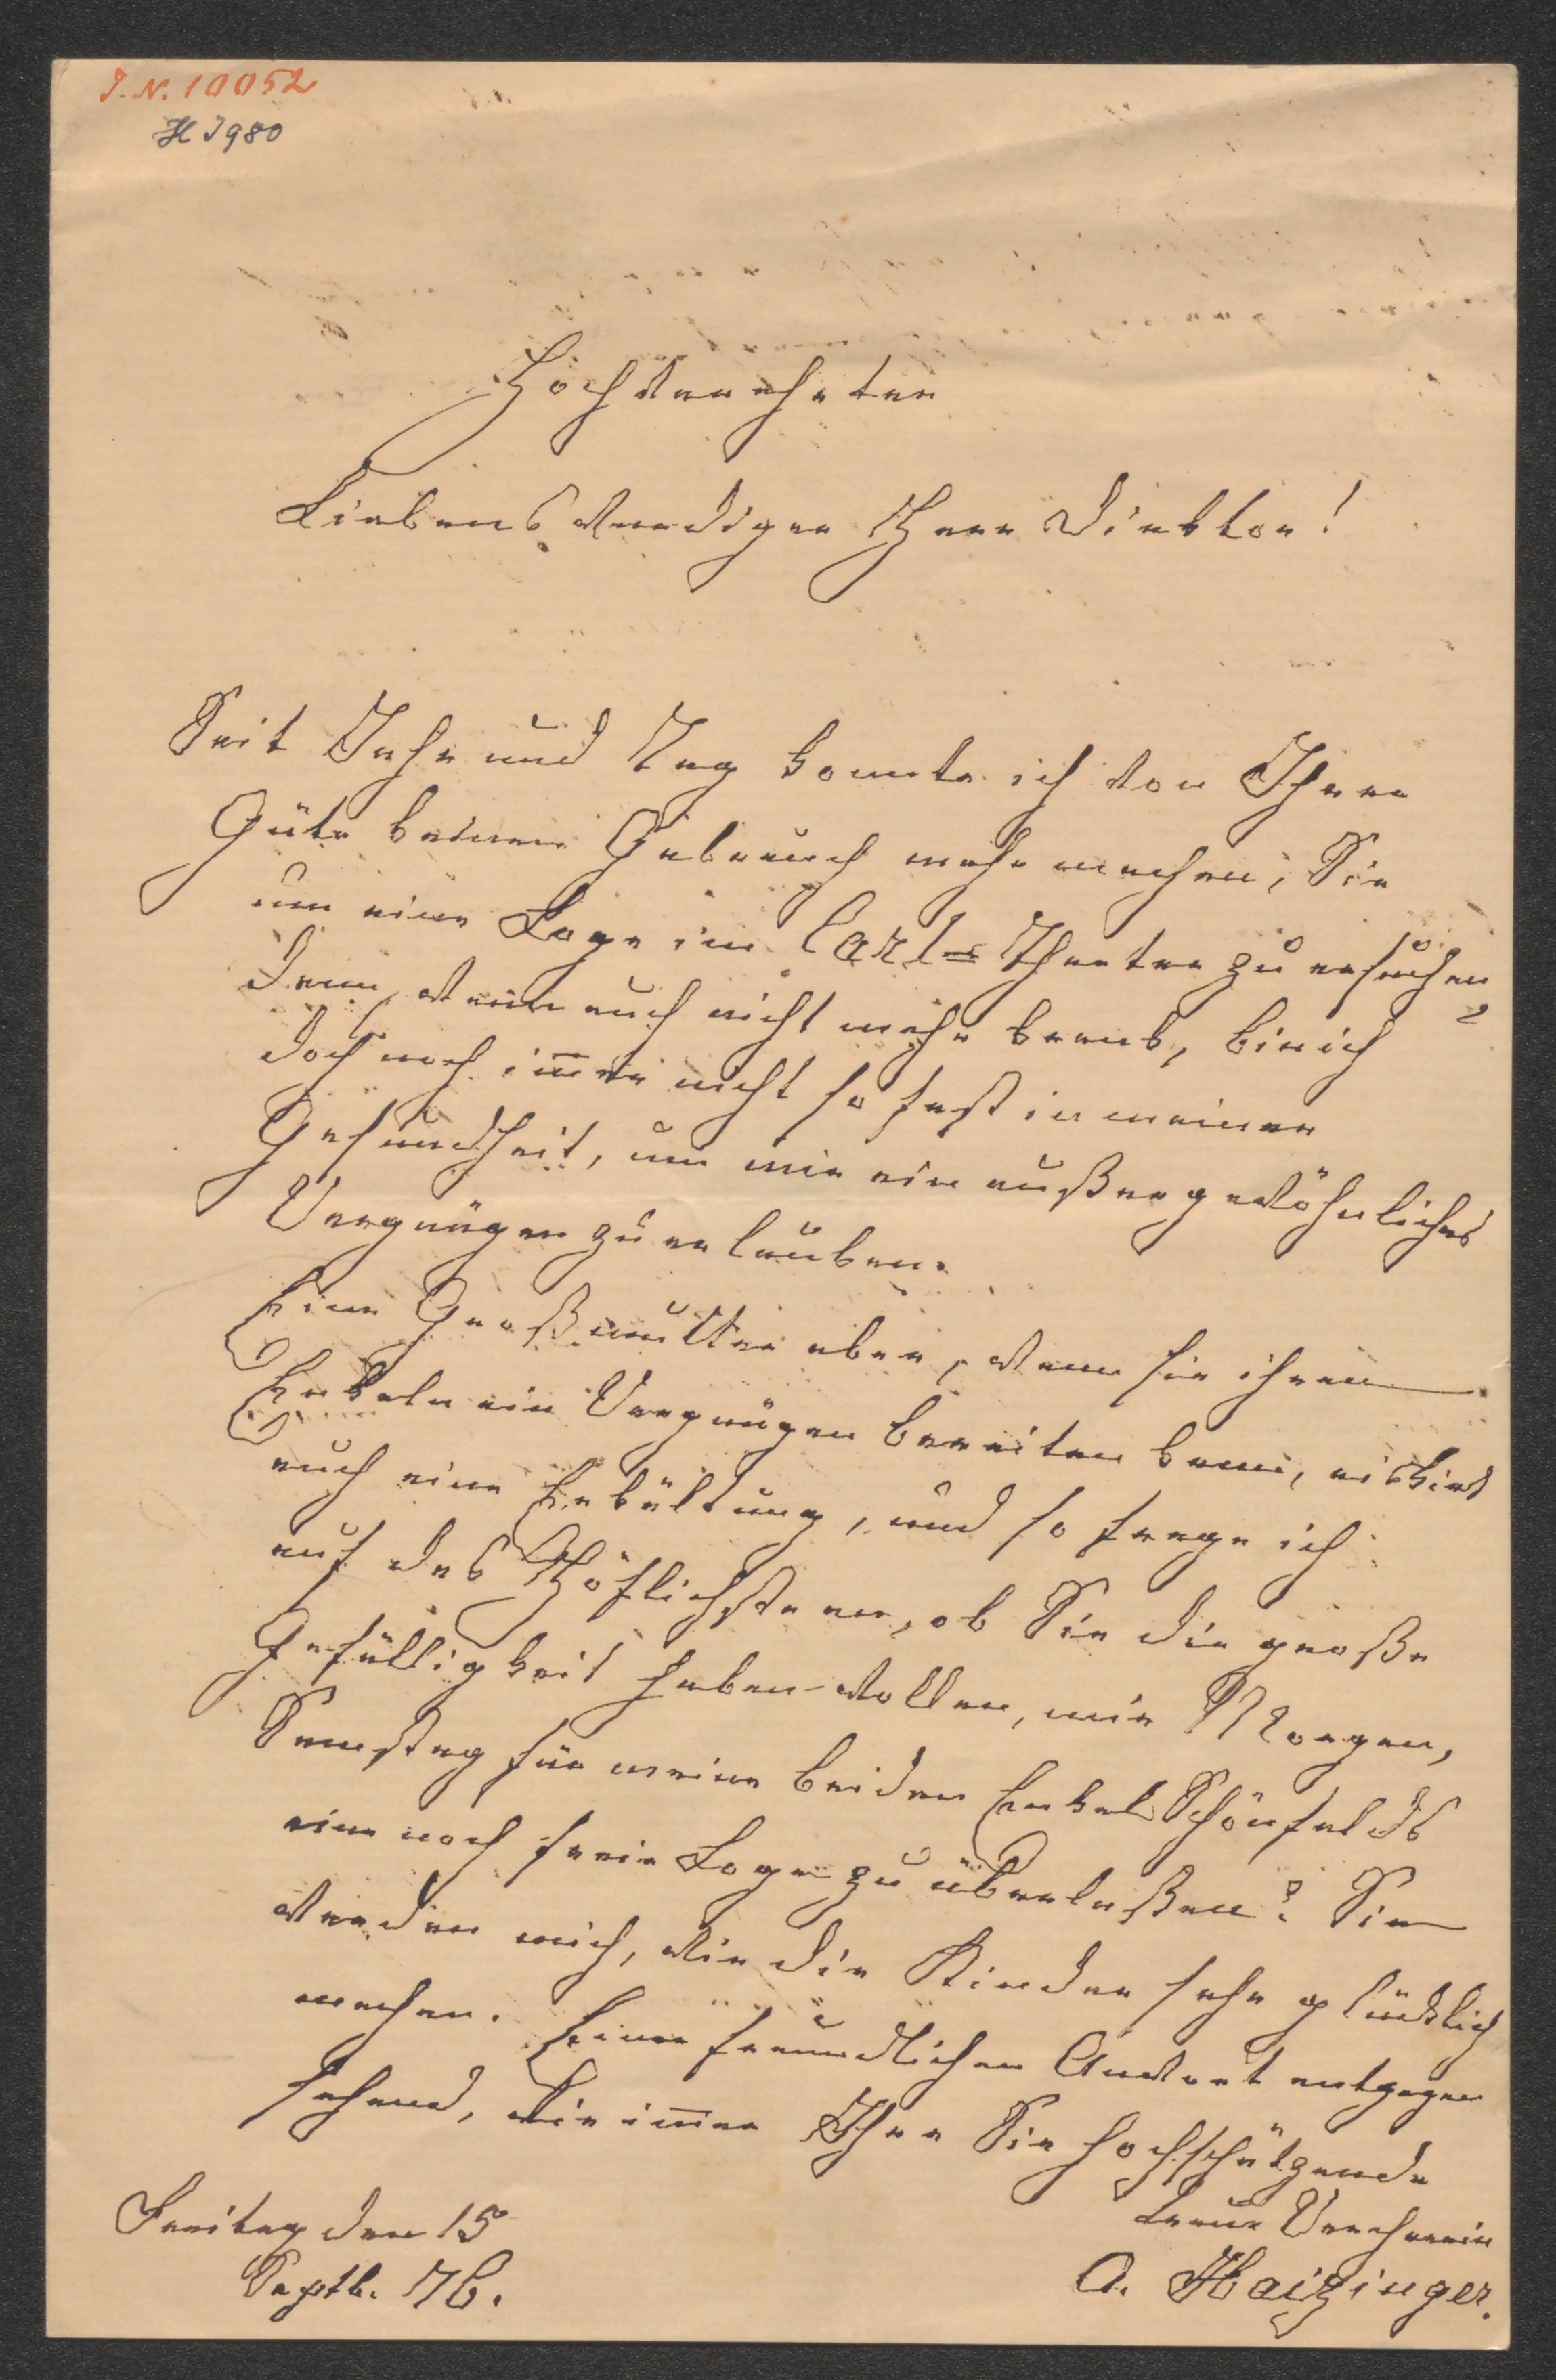 J. N. 10052
H I 980
Hochverehrter
Liebenswerdiger Herr Direktor!
Seit Jahr und Tag konnte ich von Ihrer
Güte keinen Gebrauch mehr machen, Sie
um eine Loge im Carl= Theater zu ersuchen
denn, wenn auch nicht mehr krank, bin ich
doch noch im̅er nicht so fest in meiner
Gesundheit, um mir ein außergewöhnliches
Vergnügen zu erlauben.
Eine Großmutter aber, wenn sie ihren
Enkeln ein Vergnügen bereiten kann, riskirt
auch eine Erkältung, und so frage ich
auf das Höflichste an, ob Sie die große
Gefälligkeit haben wollen, mir Morgen,
Samstag für meine beiden Enkel Schönfelds
eine noch freie Loge zu überlaßen? Sie
werden mich, wie die Kinder sehr glücklich
machen. Einer freundlichen Antwort entgegen
sehend, wie im̅er Ihre Sie hochschätzende
treue Verehrerin
Freitag den 15
Septb. 76.
A. Haizinger.